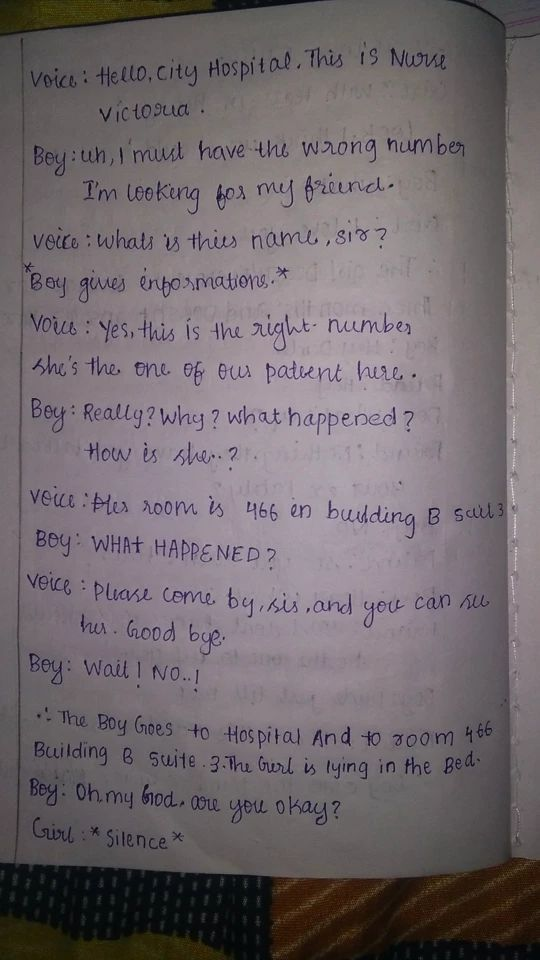 Voice: Hello, City Hospital. This is Nurse
Victoria.
Boy: uh, I must have the wrong number
I'm looking for my friend.
Voice: Whats is thies name, sir?
*Boy gives informations.*
Voice: Yes, this is the right number
she's the one of our patient here.
Boy: Really? Why? What happened?
How is she..?
Voice: Her room is 466 in building B suit 3
Boy: WHAT HAPPENED?
Voice: Please come by, sis, and you can see
her. Good bye.
Boy: Wait! NO..!
∴ The Boy Goes to Hospital And to room 466
Building B Suite.3. The Gurl is lying in the Bed.
Boy: Oh, my God. are you okay?
Girl: *Silence*